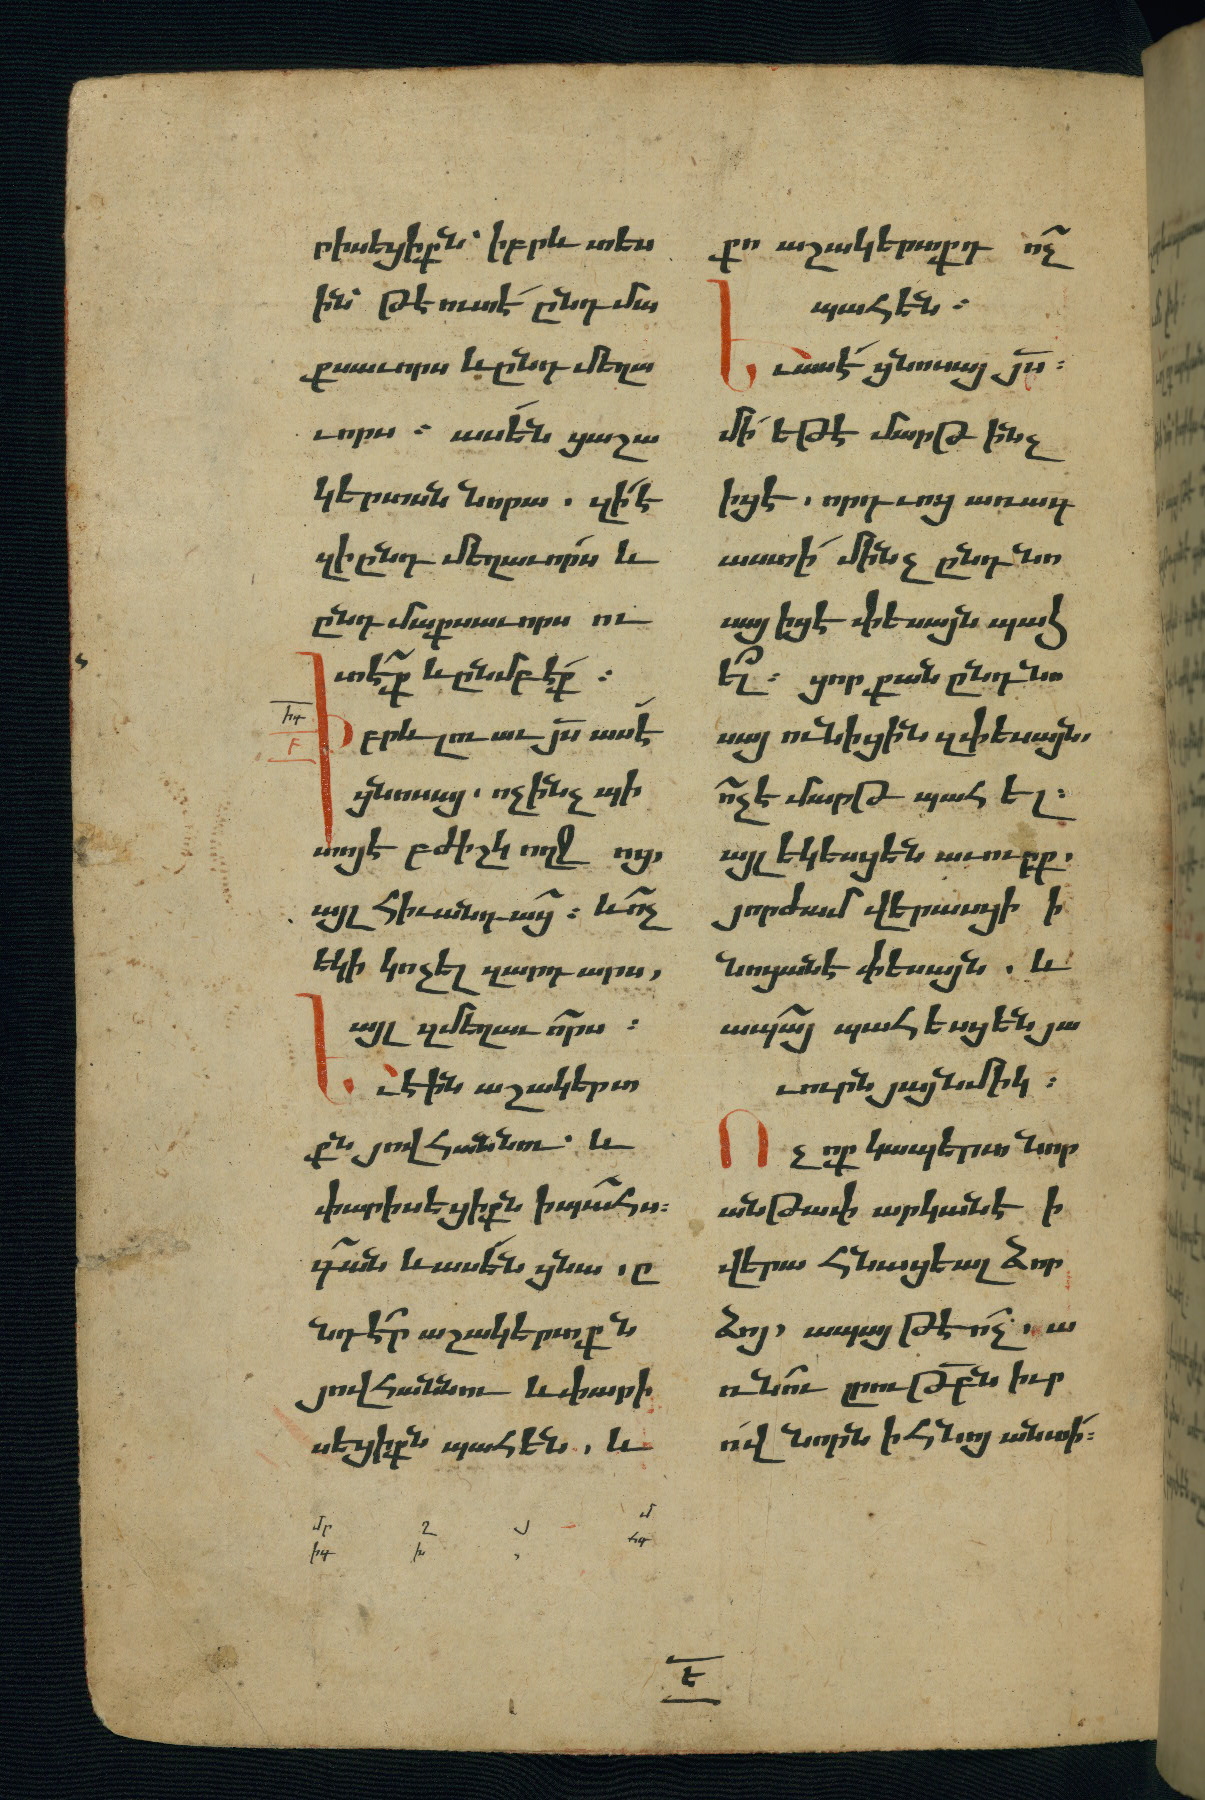 րիսեցիքն՝ իբրև տես
ին՝ թէ ուտէ ընդ մա
քսաւորս և ընդ մեղա
ւորս ։ ասեն ցաշա
կերտսն նորա . զի՞ է
զի ընդ մեղաւորս և
ընդ մաքսաւորս ու
տէք և ըմպէք ։
Իբրև լուաւ յս ասէ
ցնոսա, ոչինչ պի
տոյէ բժիշկ ողջ ոց,
այլ հիւանդաց ։ և ոչ
եկի կոչել զարդարս,
այլ զմեղաւորս ։
Եւ էին աշակերտ
քն յովհաննու՝ և
փարիսեցիքն ի պահս։
գան և ասեն ցնա, ը
նդէր աշակերտքն
յովհաննու և փարի
սեցիքն պահեն, և
քո աշակերտքդ ոչ
պահեն ։
Եւ ասէ ցնոսա յս ։
մի եթէ մարթ ինչ
իցէ, որդւոց առագ
աստի մինչ ընդ նո
սա իցէ փեսայն պահ
ել ։ ցորքան ընդ նո
սա ունիցին զփեսայն,
ոչ է մարթ պահել ։
այլ եկեսցեն աւուրք,
յորժամ վերասցի ի
նոցանէ փեսայն, և
ապա պահեսցեն յա
ւուրն յայնմիկ ։
Ոչ ոք կապերտ նոր
անթափ արկանէ ի
վերա հնացեալ ձոր
ձոյ, ապա թէ ոչ, ա
ռնու լրութբն իւր
ով նորն ի հնոյ անտի։
իգ
բ
է